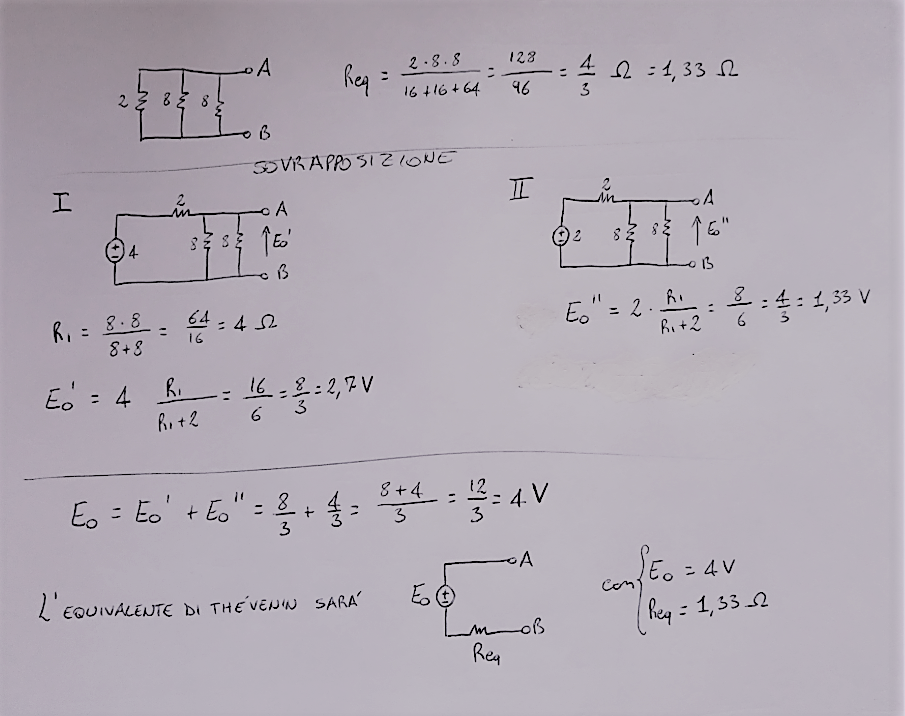 A
2 8 8
B
Req = 2·8·8 / 16+16+64 = 128 / 96 = 4/3 Ω = 1,33 Ω
SOVRAPPOSIZIONE
I
2
A
4 8 8 Eo'
B
R₁ = 8·8 / 8+8 = 64/16 = 4 Ω
Eo' = 4 R₁ / R₁+2 = 16/6 = 8/3 = 2,7 V
II
2
A
2 8 8 Eo"
B
Eo" = 2 · R₁ / R₁+2 = 8/6 = 4/3 = 1,33 V
Eo = Eo' + Eo" = 8/3 + 4/3 = 8+4 / 3 = 12/3 = 4 V
L'EQUIVALENTE DI THÉVENIN SARÁ
A
Eo
B
Req
con { Eo = 4 V
Req = 1,33 Ω